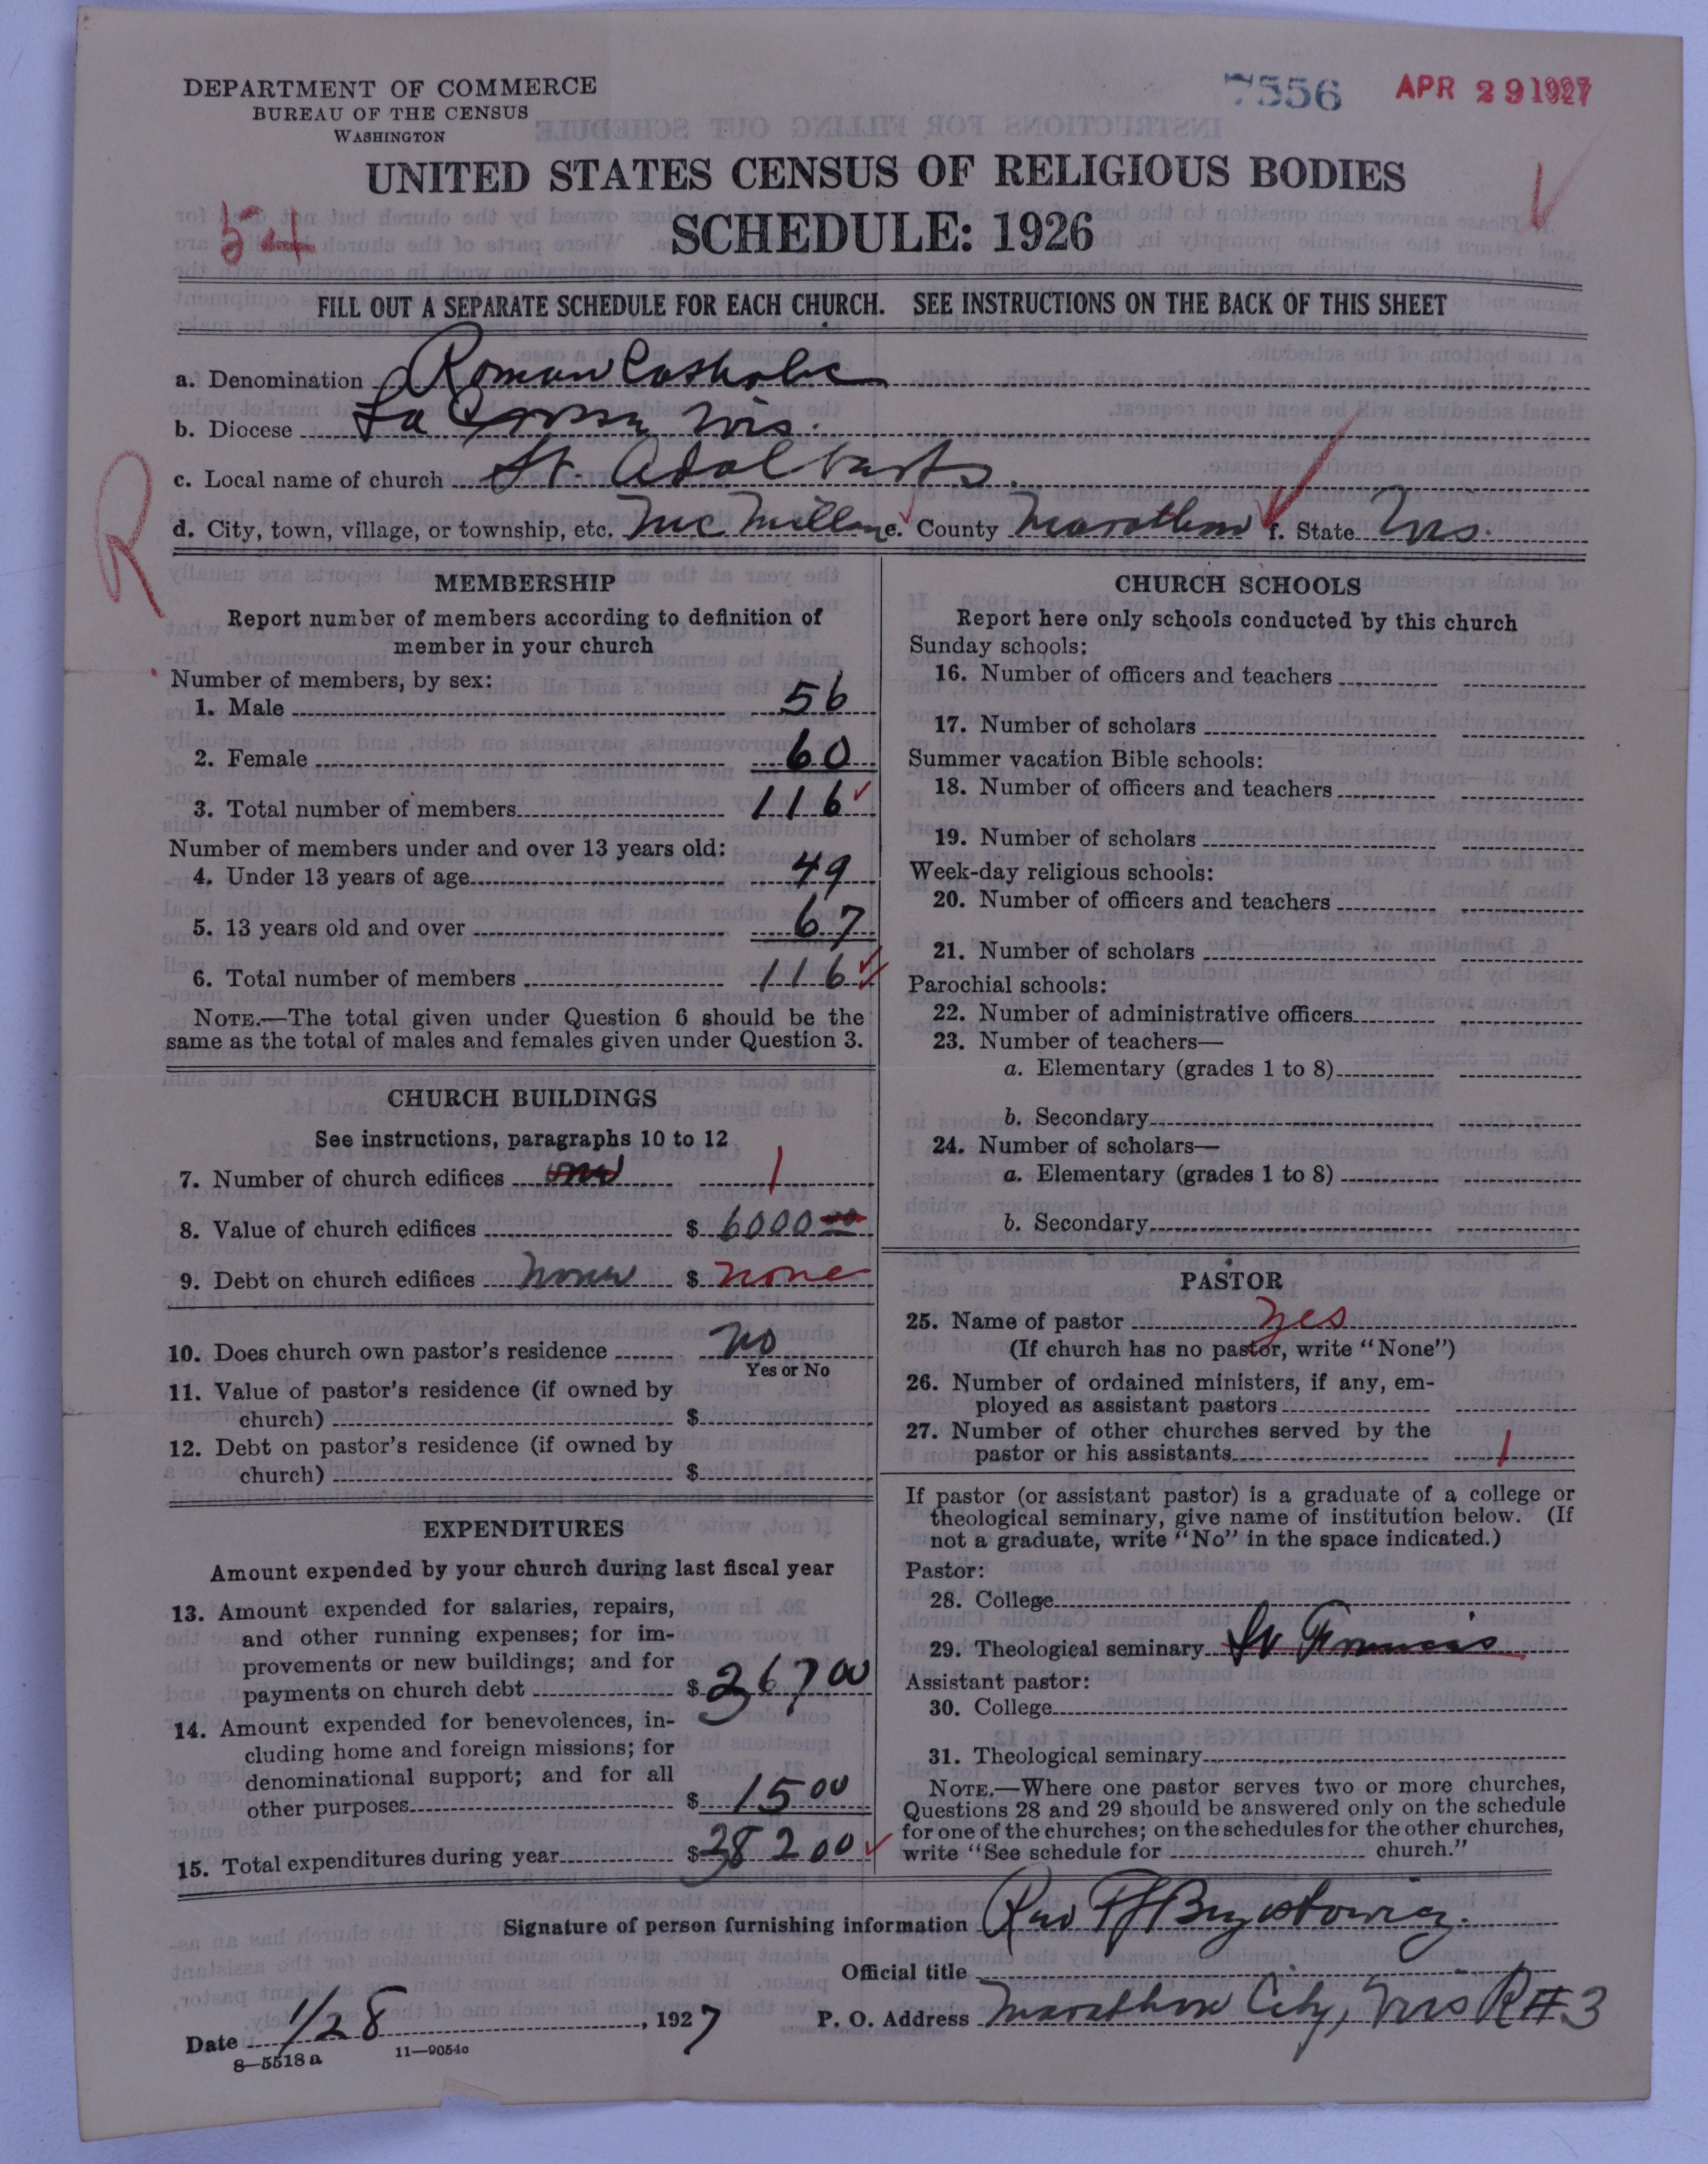 DEPARTMENT OF COMMERCE
BUREAU OF THE CENSUS
WASHINGTON
7556 APR 29 1927
UNITED STATES CENSUS OF RELIGIOUS BODIES
54
SCHEDULE: 1926
FILL OUT A SEPARATE SCHEDULE FOR EACH CHURCH. SEE INSTRUCTIONS ON THE BACK OF THIS SHEET
a. Denomination Roman Catholic
b. Diocese La Crosse, Wis.
c. Local name of church St. Adalberts.
R
d. City, town, village, or township, etc. McMillan e. County Marathon f. State Wis.
MEMBERSHIP
Report number of members according to definition of
member in your church
Number of members, by sex:
1. Male 56
2. Female 60
3. Total number of members 116
Number of members under and over 13 years old:
4. Under 13 years of age 49
5. 13 years old and over 67
6. Total number of members 116
NOTE.—The total given under Question 6 should be the
same as the total of males and females given under Question 3.
CHURCH BUILDINGS
See instructions, paragraphs 10 to 12
7. Number of church edifices one 1
8. Value of church edifices $ 6000 00
9. Debt on church edifices none $ none
10. Does church own pastor's residence no
Yes or No
11. Value of pastor's residence (if owned by
church) $
12. Debt on pastor's residence (if owned by
church) $
EXPENDITURES
Amount expended by your church during last fiscal year
13. Amount expended for salaries, repairs,
and other running expenses; for im-
provements or new buildings; and for
payments on church debt $ 367 00
14. Amount expended for benevolences, in-
cluding home and foreign missions; for
denominational support; and for all
other purposes $ 15 00
15. Total expenditures during year $ 382 00
CHURCH SCHOOLS
Report here only schools conducted by this church
Sunday schools:
16. Number of officers and teachers
17. Number of scholars
Summer vacation Bible schools:
18. Number of officers and teachers
19. Number of scholars
Week-day religious schools:
20. Number of officers and teachers
21. Number of scholars
Parochial schools:
22. Number of administrative officers
23. Number of teachers—
a. Elementary (grades 1 to 8)
b. Secondary
24. Number of scholars—
a. Elementary (grades 1 to 8)
b. Secondary
PASTOR
25. Name of pastor yes
(If church has no pastor, write "None")
26. Number of ordained ministers, if any, em-
ployed as assistant pastors
27. Number of other churches served by the
pastor or his assistants 1
If pastor (or assistant pastor) is a graduate of a college or
theological seminary, give name of institution below. (If
not a graduate, write "No" in the space indicated.)
Pastor:
28. College
29. Theological seminary St Francis
Assistant pastor:
30. College
31. Theological seminary
NOTE.—Where one pastor serves two or more churches,
Questions 28 and 29 should be answered only on the schedule
for one of the churches; on the schedules for the other churches,
write "See schedule for church."
Signature of person furnishing information Rev
Official title
Date 1/28, 1927 P. O. Address Marathon City, Wis R#3
8—5518a 11—9054c